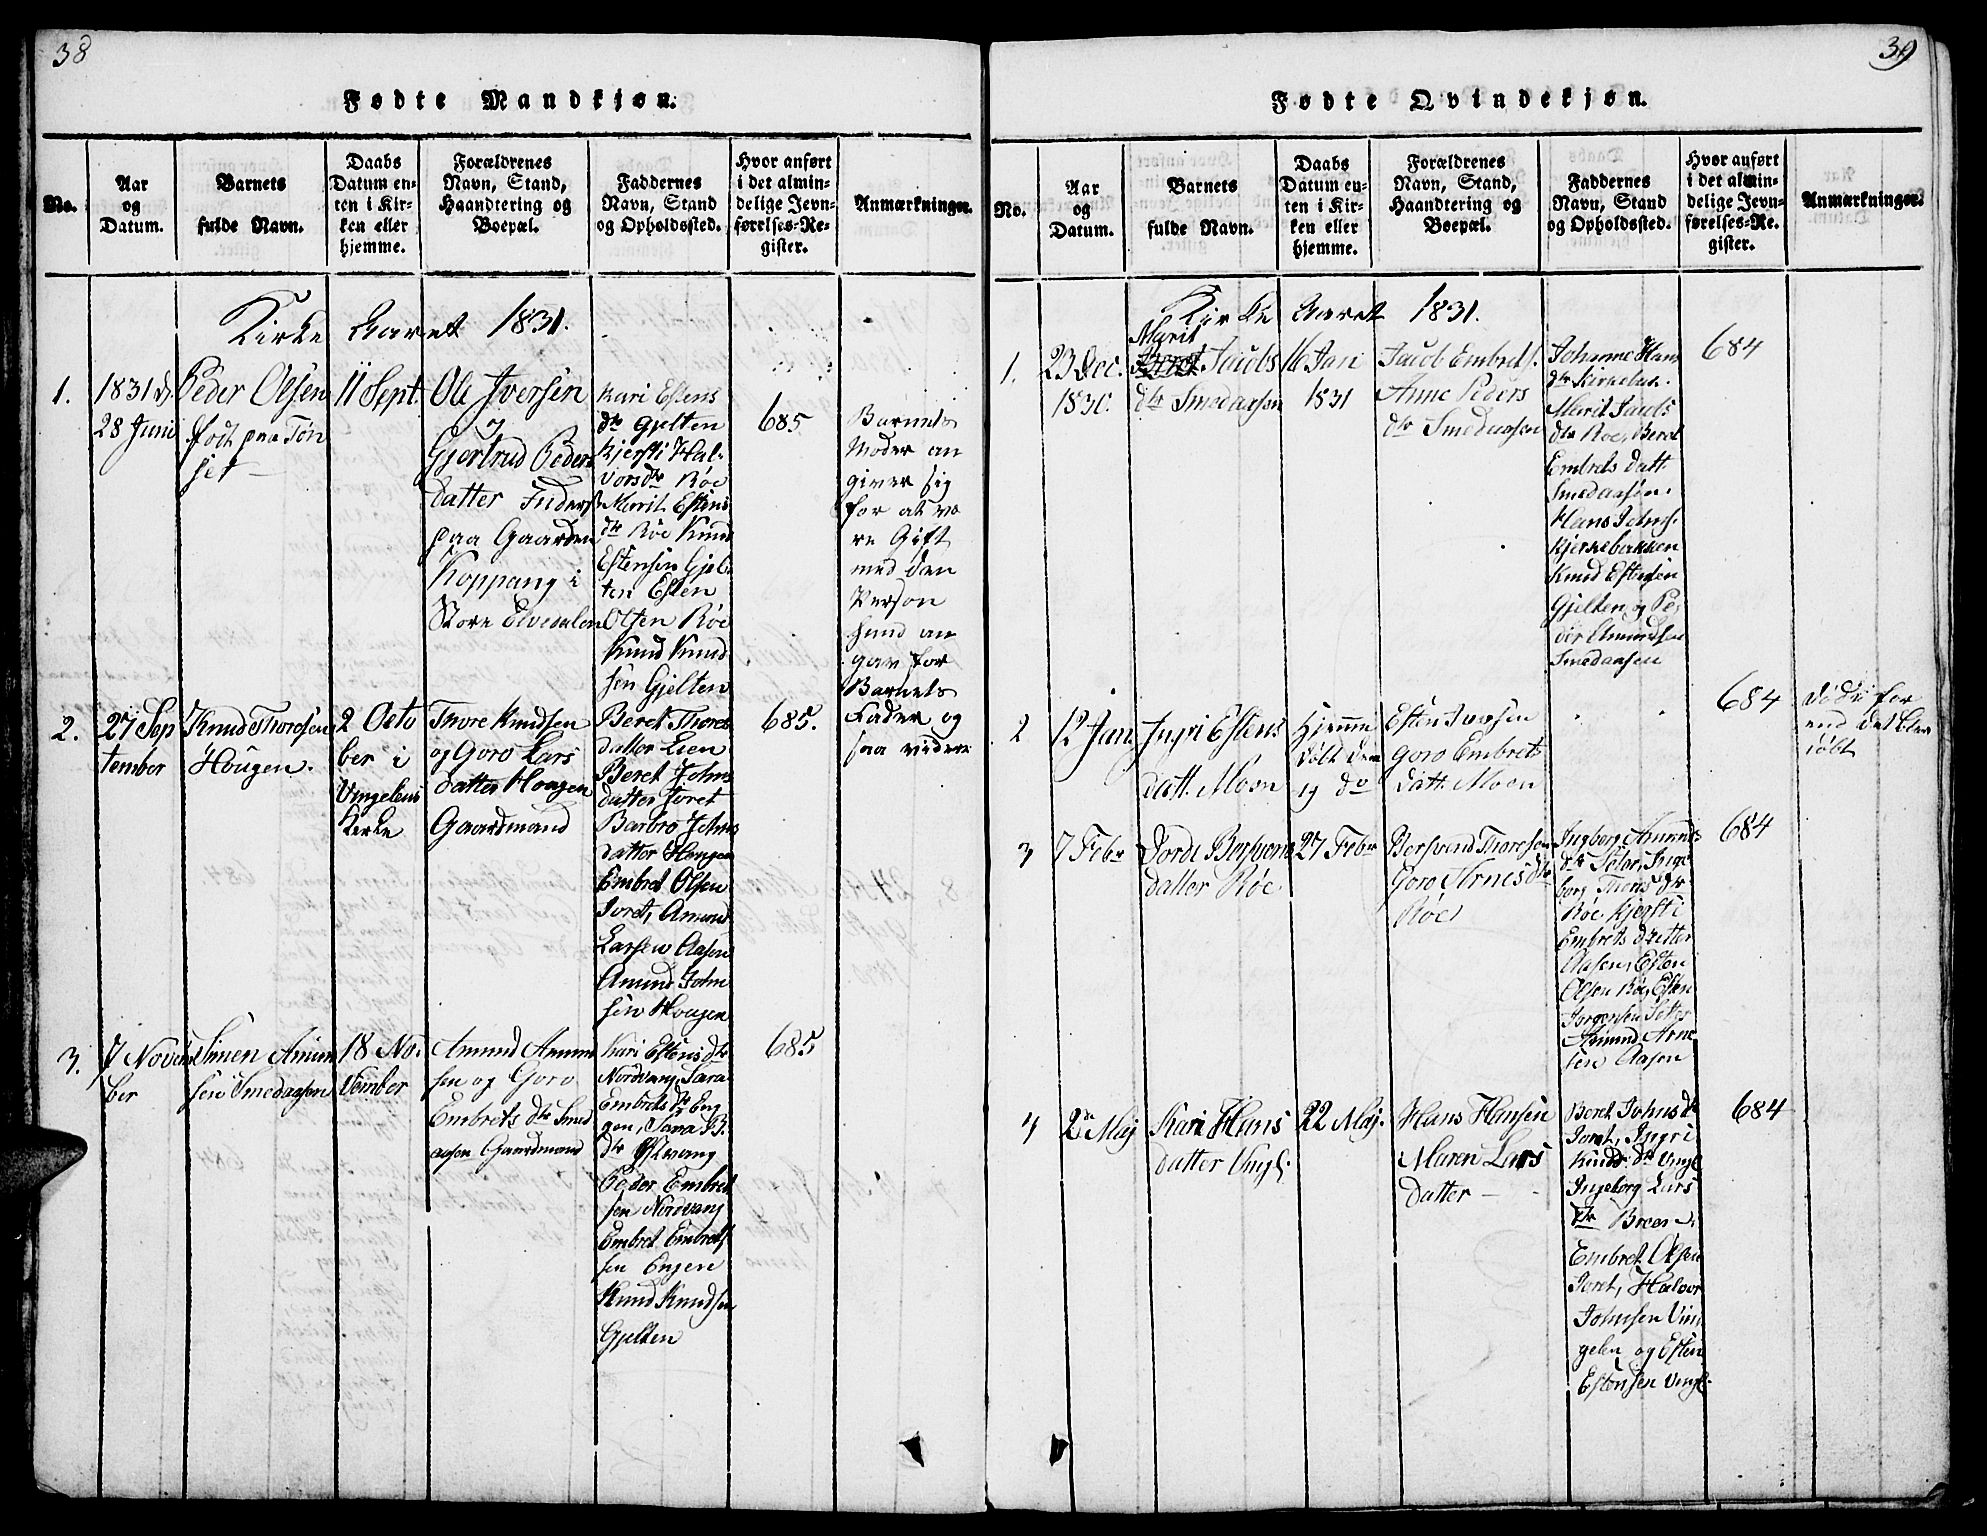 38
Fødte Mandkjøn.
No.
Aar
og
Datum.
Barnets
fulde Navn.
Daabs
Datum en-
ten i Kir-
ken eller
hjemme.
Forældrenes
Navn, Stand,
Haandtering og
Boepæl.
Faddernes
Navn, Stand
og Opholdssted.
Hvor anført
i det almin-
delige Jevn-
førelses-Re-
gister.
Anmærkninger.
Kirke Aaret 1831.
1.
1831 d.
28 Juni
Peder Olsen
født paa Tøn
set
11 Sept.
Ole Iversen
og
Gjertrud Peders
datter Inderst
paa Gaarden
Koppang i
Store Elvedalen
Kari Estens
dtr Gjelten
Kjersti Hal-
vorsdtr Røe
Marit Estens
dtr Røe Knud
Estensen Gjel-
ten Esten
Olsen Røe
Knud Knud
sen Gjelten
685
Barnets
Moder an
giver sig
for at væ
re Gift
med den
Person
hund an
gav for
Barnets
Fader og
saa videre
2.
27 Sep
tember
Knud Thoresen
Hougen.
2 Octo
ber i
Vingelens
Kirke
Thore Knudsen
og Goro Lars
datter Hougen
Gaardmand
Beret Thores
datter Lien
Beret Johns
datter Joret
Barbro Johns
datter Hougen
Embret Olsen
Joret, Amund
Larsen Aasen
Amund John
sen Hougen
685.
3.
7 Novem
ber
Simen Amun
sen Smedaasen
18 No.
vember
Amund Amun
sen og Goro
Embrets dtr Smed
aasen Gaardmand
Kari Estens dtr
Nordvang, Sara
Embrets dtr Eng
gen, Sara P.
dtr Østvang
Peder Embret
sen Nordvang
Embret Embret
sen Engen
Knud Knudsen
Gjelten
685
39
Fødte Qvindekjøn.
No.
Aar
og
Datum.
Barnets
fulde Navn.
Daabs
Datum en-
ten i Kir-
ken eller
hjemme.
Forældrenes
Navn, Stand,
Haandtering og
Boepæl.
Faddernes
Navn, Stand
og Opholdssted.
Hvor anført
i det almin-
delige Jevn-
førelses-Re-
gister.
Anmærkninger.
Kirke Aaret 1831.
1.
23 Dec.
1830.
Marit
Beret Jacobs
dtr Smedaasen
16 Jan
1831
Jacob Embrets.
Anne Peders
dtr Smedaasen
Johanne Hans
dtr Kirkebak.
Marit Jacobs
dtr Røe, Beret
Embrets datt.
Smedaasen.
Hans Johns.
Kjerkebakken
Knud Estensen
Gjelten, og Pe,
der Elmundsen
Smedaasen
684
2
12 Jan
Ingri Estens
datt. Moen
Hjemme
døbt den
19 do
Esten Iversen
Goro Embrets
datt. Moen
684
Døde før
end det blev
døbt
3
7 Febr
Dordi Bersvens
datter Røe.
27 Febr
Bersvend Thoresen
Goro Arnes dtr
Røe
Ingborg Amunds
dtr Sæter, Inge
borg Thores dtr
Røe. Kjersti
Embrets datter
Aasen, Esten
Olsen Røe, Esten
Jorgensen Sæter
Amund Arne
sen Aasen
684
4
2de Maj
Kari Hans
datter Vingl.
22 Maj.
Hans Hansen
Maren Lars
datter
Beret Johns dtr
Joret, Ingri
Knuds. dtr Vingl
Ingeborg Lars
dtr Broen
Embret Olsen
Joret, Halvor
Johnsen Vin
gelen og Esten
Estensen Vingl.
684